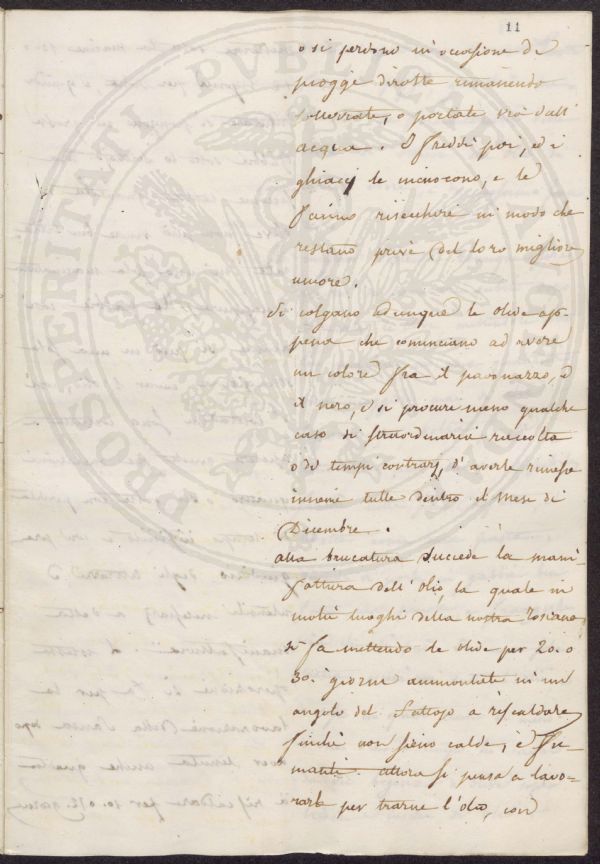 11
o si perdono in occasione di
piogge dirotte rimanendo
sotterrate, o portate via dall'
acqua. I freddi poi, ed i
ghiacci le incuocono, e le
fanno risecchire in modo che
restano prive del loro migliore
umore.
Si colgano adunque le olive ap-
pena che cominciano ad avere
un colore fra il pavonazzo, e
il nero, e si procuri meno qualche
caso di straordinaria raccolta
o di tempi contrarj, d'averle rimesse
insieme tutte dentro il Mese di
Dicembre.
Alla brucatura succede la mani-
fattura dell'Olio, la quale in
molti luoghi della nostra Toscana
si fa mettendo le olive per 20. o
30. giorni ammontate in un
angolo del Fattojo a riscaldare
finché non sieno calde, e fu-
manti. Allora si pensa a lavo-
rarle per trarne l'olio, con
PROSPERITATI PVBLICAE